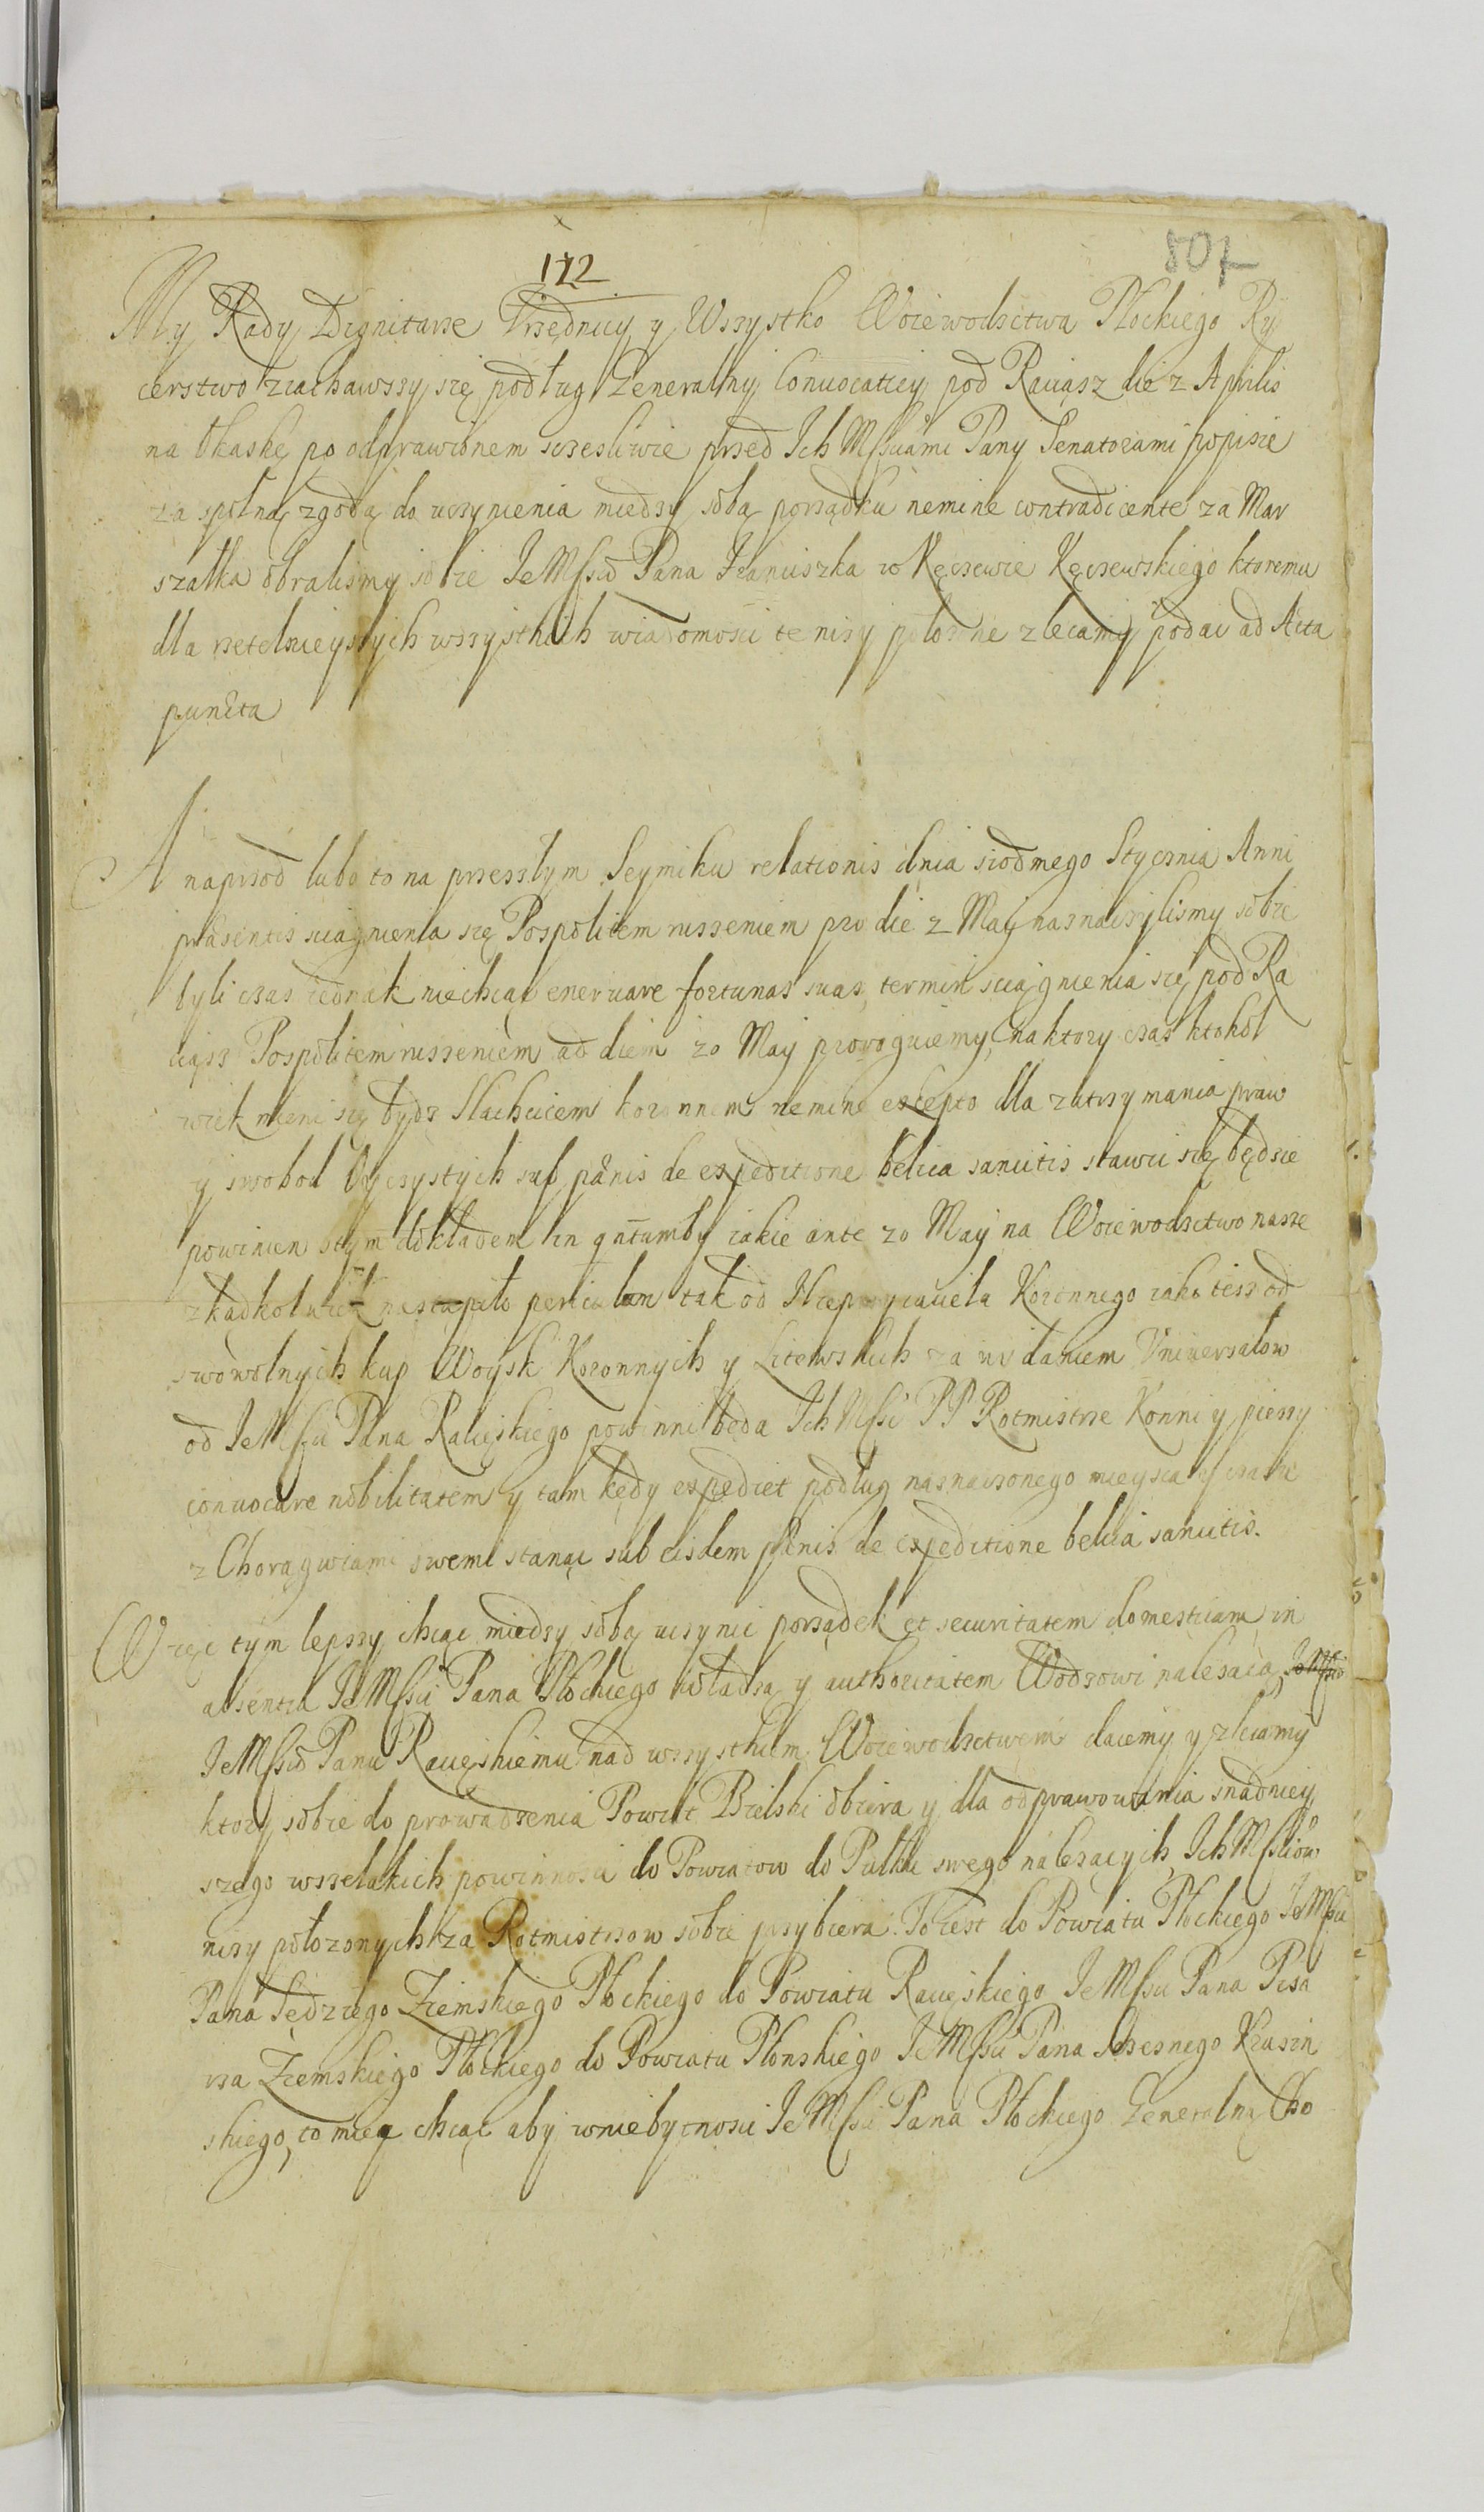 172
807
My Rady Dignitarze Vrzędnicy y Wszystko Woiewodztwa Płockiego Ry
cerstwo ziachawszy się podług Generalny Conuocatiey pod Raciasz die 2 Aprilis
na Okaskę po odprawionem sczesliwie przed Ich Mściami Pany Senatorami popisie
za spolną zgodą do uczynienia miedzy sobą porządku nemine contradicente za Mar
szałka obralismy sobie Je Mści Pana Franciszka w Kęczewie Kęczewskiego ktoremu
dla rzetelnieyszych wszystkich wiadomosci te nizy połozne zlecamy podac ad Acta
puncta
A naprzod lubo to na przeszłym Seymiku relationis dnia siodmego Stycznia Anni
praesentis sciagnienia się Pospolitem russeniem pro die 2 May naznaczylismy sobie
byli czas iednak niechcąc eneruare fortunas suas, termin sciągnienia się pod Ra
ciąsz Pospolitem russeniem ad diem 20 May proroguiemy, na ktory czas ktokol
wiek mieni się bydz Slachcicem koronnem nemine excepto dla zatrzymania praw
y swobod Oyczystych sub paenis de expeditione bellica sancitis stawic się będzie
powinien stym dokładem in quantumby iakie ante 20 May na Woiewodztwo nasze
zkądkolwiek nastąpiło periculum tak od Nieprzyiaciela Koronnego iako tesz od
swowolnych kup Woysk Koronnych y Litewskich za wydaniem Vniuersałow
od Je Mści Pana Racięskiego powinni beda Ich Mści PP Rotmistrze Konni y pieszy
conuocare nobilitatem y tam kędy expediet podług naznaczonego mieysca y czasu
z Chorągwiami swemi stanąc sub eisdem paenis de expeditione bellica sancitis.
Więc tym lepszy chcąc miedzy sobą uczynic porządek et securitatem domesticam in
absentia Je Mści Pana Płockiego władzą y authoritatem Wodzowi nalezacą
Je Mści Panu Racięskiemu nad wszystkiem Woiewodztwem daiemy y zlecamy
ktory sobie do prowadzenia Powiat Bielski obiera y dla odprawowania snadniey
szego wszelakich powinnosci do Powiatow do Pułku swego nalezących Ich Mściow
nizy połozonych za Rotmistrzow sobie przybiera. To iest do Powiatu Płockiego Je Mści
Pana Sędziego Ziemskiego Płockiego do Powiatu Racięskiego Je Mści Pana Pisa
rza Ziemskiego Płockiego do Powiatu Płonskiego Je Mści Pana Sczesnego Krasin
skiego, to miec chcąc aby w niebytnosci Je Mści Pana Płockiego Generalną Cho